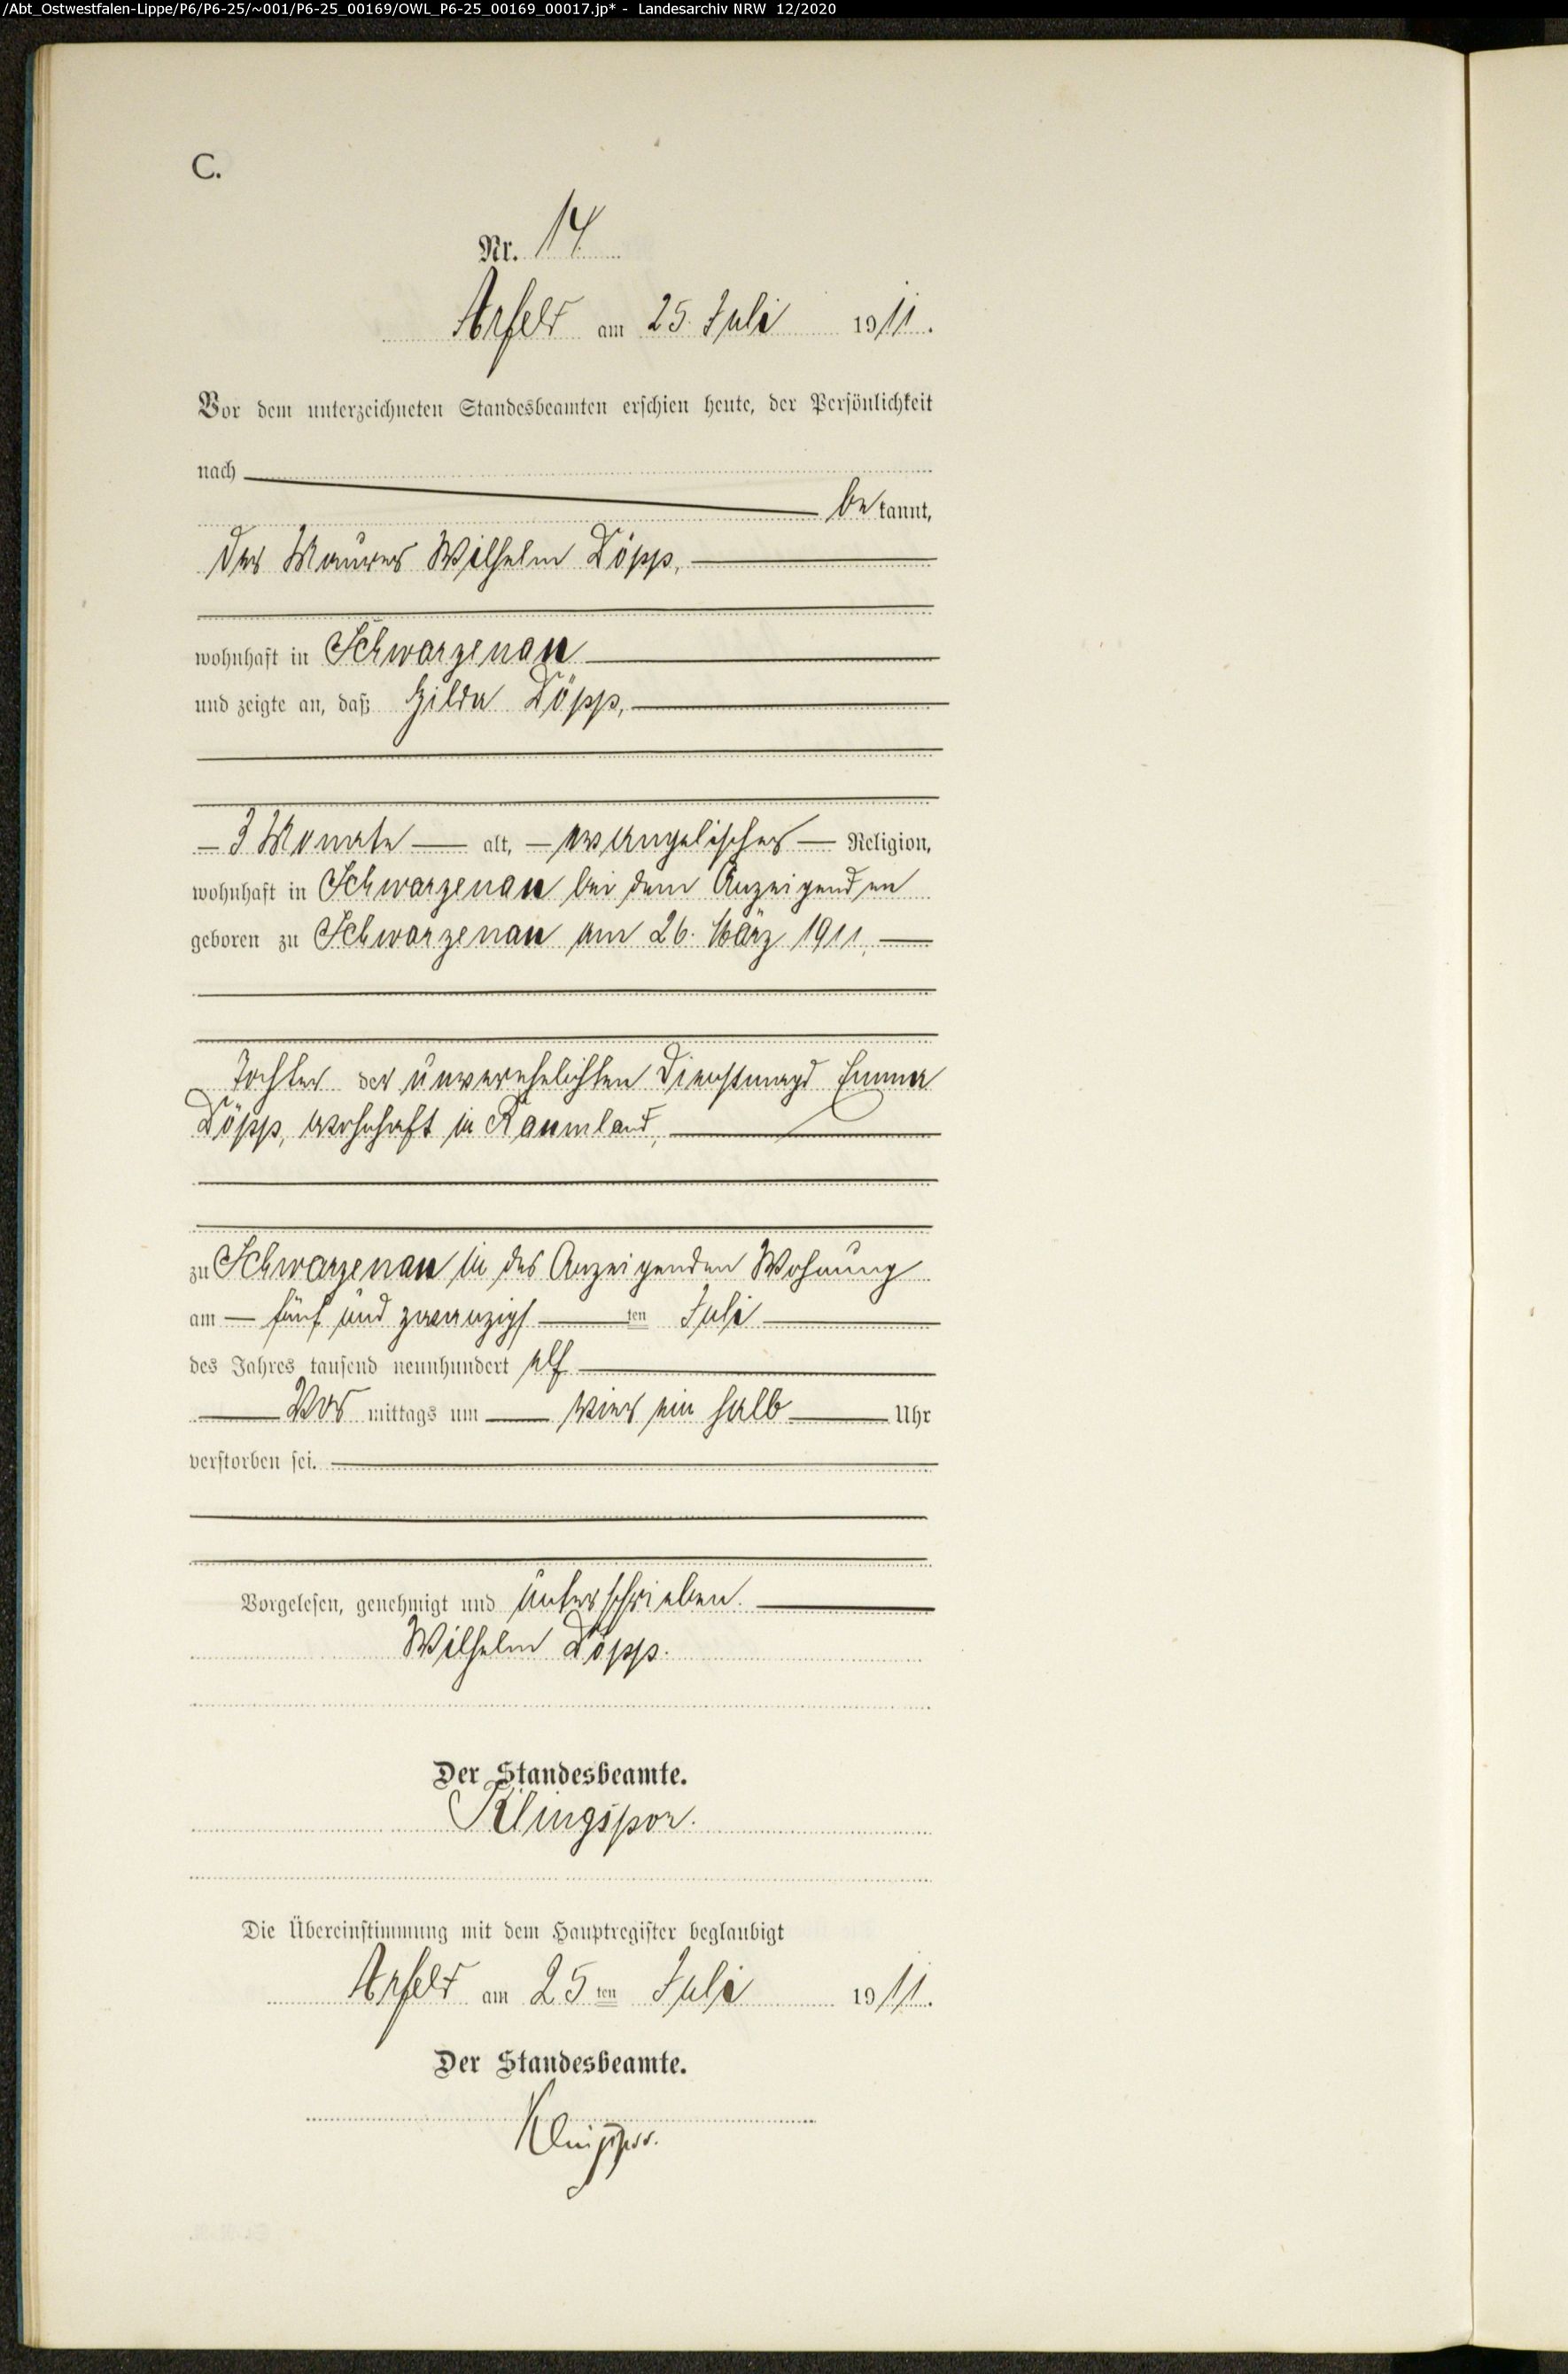 /Abt_Ostwestfalen-Lippe/P6/P6-25/~001/P6-25_00169/OWL_P6-25_00169_00017.jp* - Landesarchiv NRW 12/2020
C.
Nr. 14
Arfeld am 25. Juli 1911.
Vor dem unterzeichneten Standesbeamten erschien heute, der Persönlichkeit
nach
be kannt,
der Maurer Wilhelm Döpp,
wohnhaft in Schwarzenau
und zeigte an, daß Hilda Döpp,
3 Monate alt, evangelischer Religion,
wohnhaft in Schwarzenau bei dem Anzeigenden
geboren zu Schwarzenau am 26. März 1911,
Tochter der unverehelichten Dienstmagd Emma
Döpp, wohnhaft in Raumland,
zu Schwarzenau in des Anzeigenden Wohnung
am fünf und zwanzigs ten Juli
des Jahres tausend neunhundert elf
Vor mittags um vier ein halb Uhr
verstorben sei.
Vorgelesen, genehmigt und unterschrieben.
Wilhelm Döpp.
Der Standesbeamte.
Klingspor.
Die Übereinstimmung mit dem Hauptregister beglaubigt
Arfeld am 25 ten Juli 1911.
Der Standesbeamte.
Klingspor.